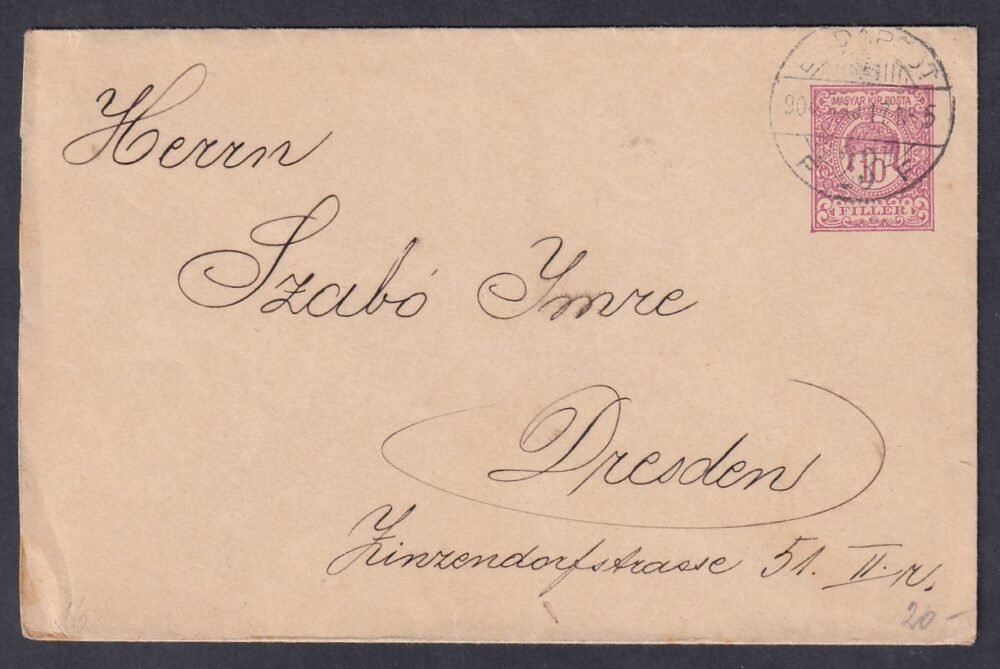 BUDAPEST
MAGYAR KIR. POSTA
10
FILLER
Herrn
Szabó Imre
Dresden
Zinzendorfstrasse 51. II. r.
16
20-